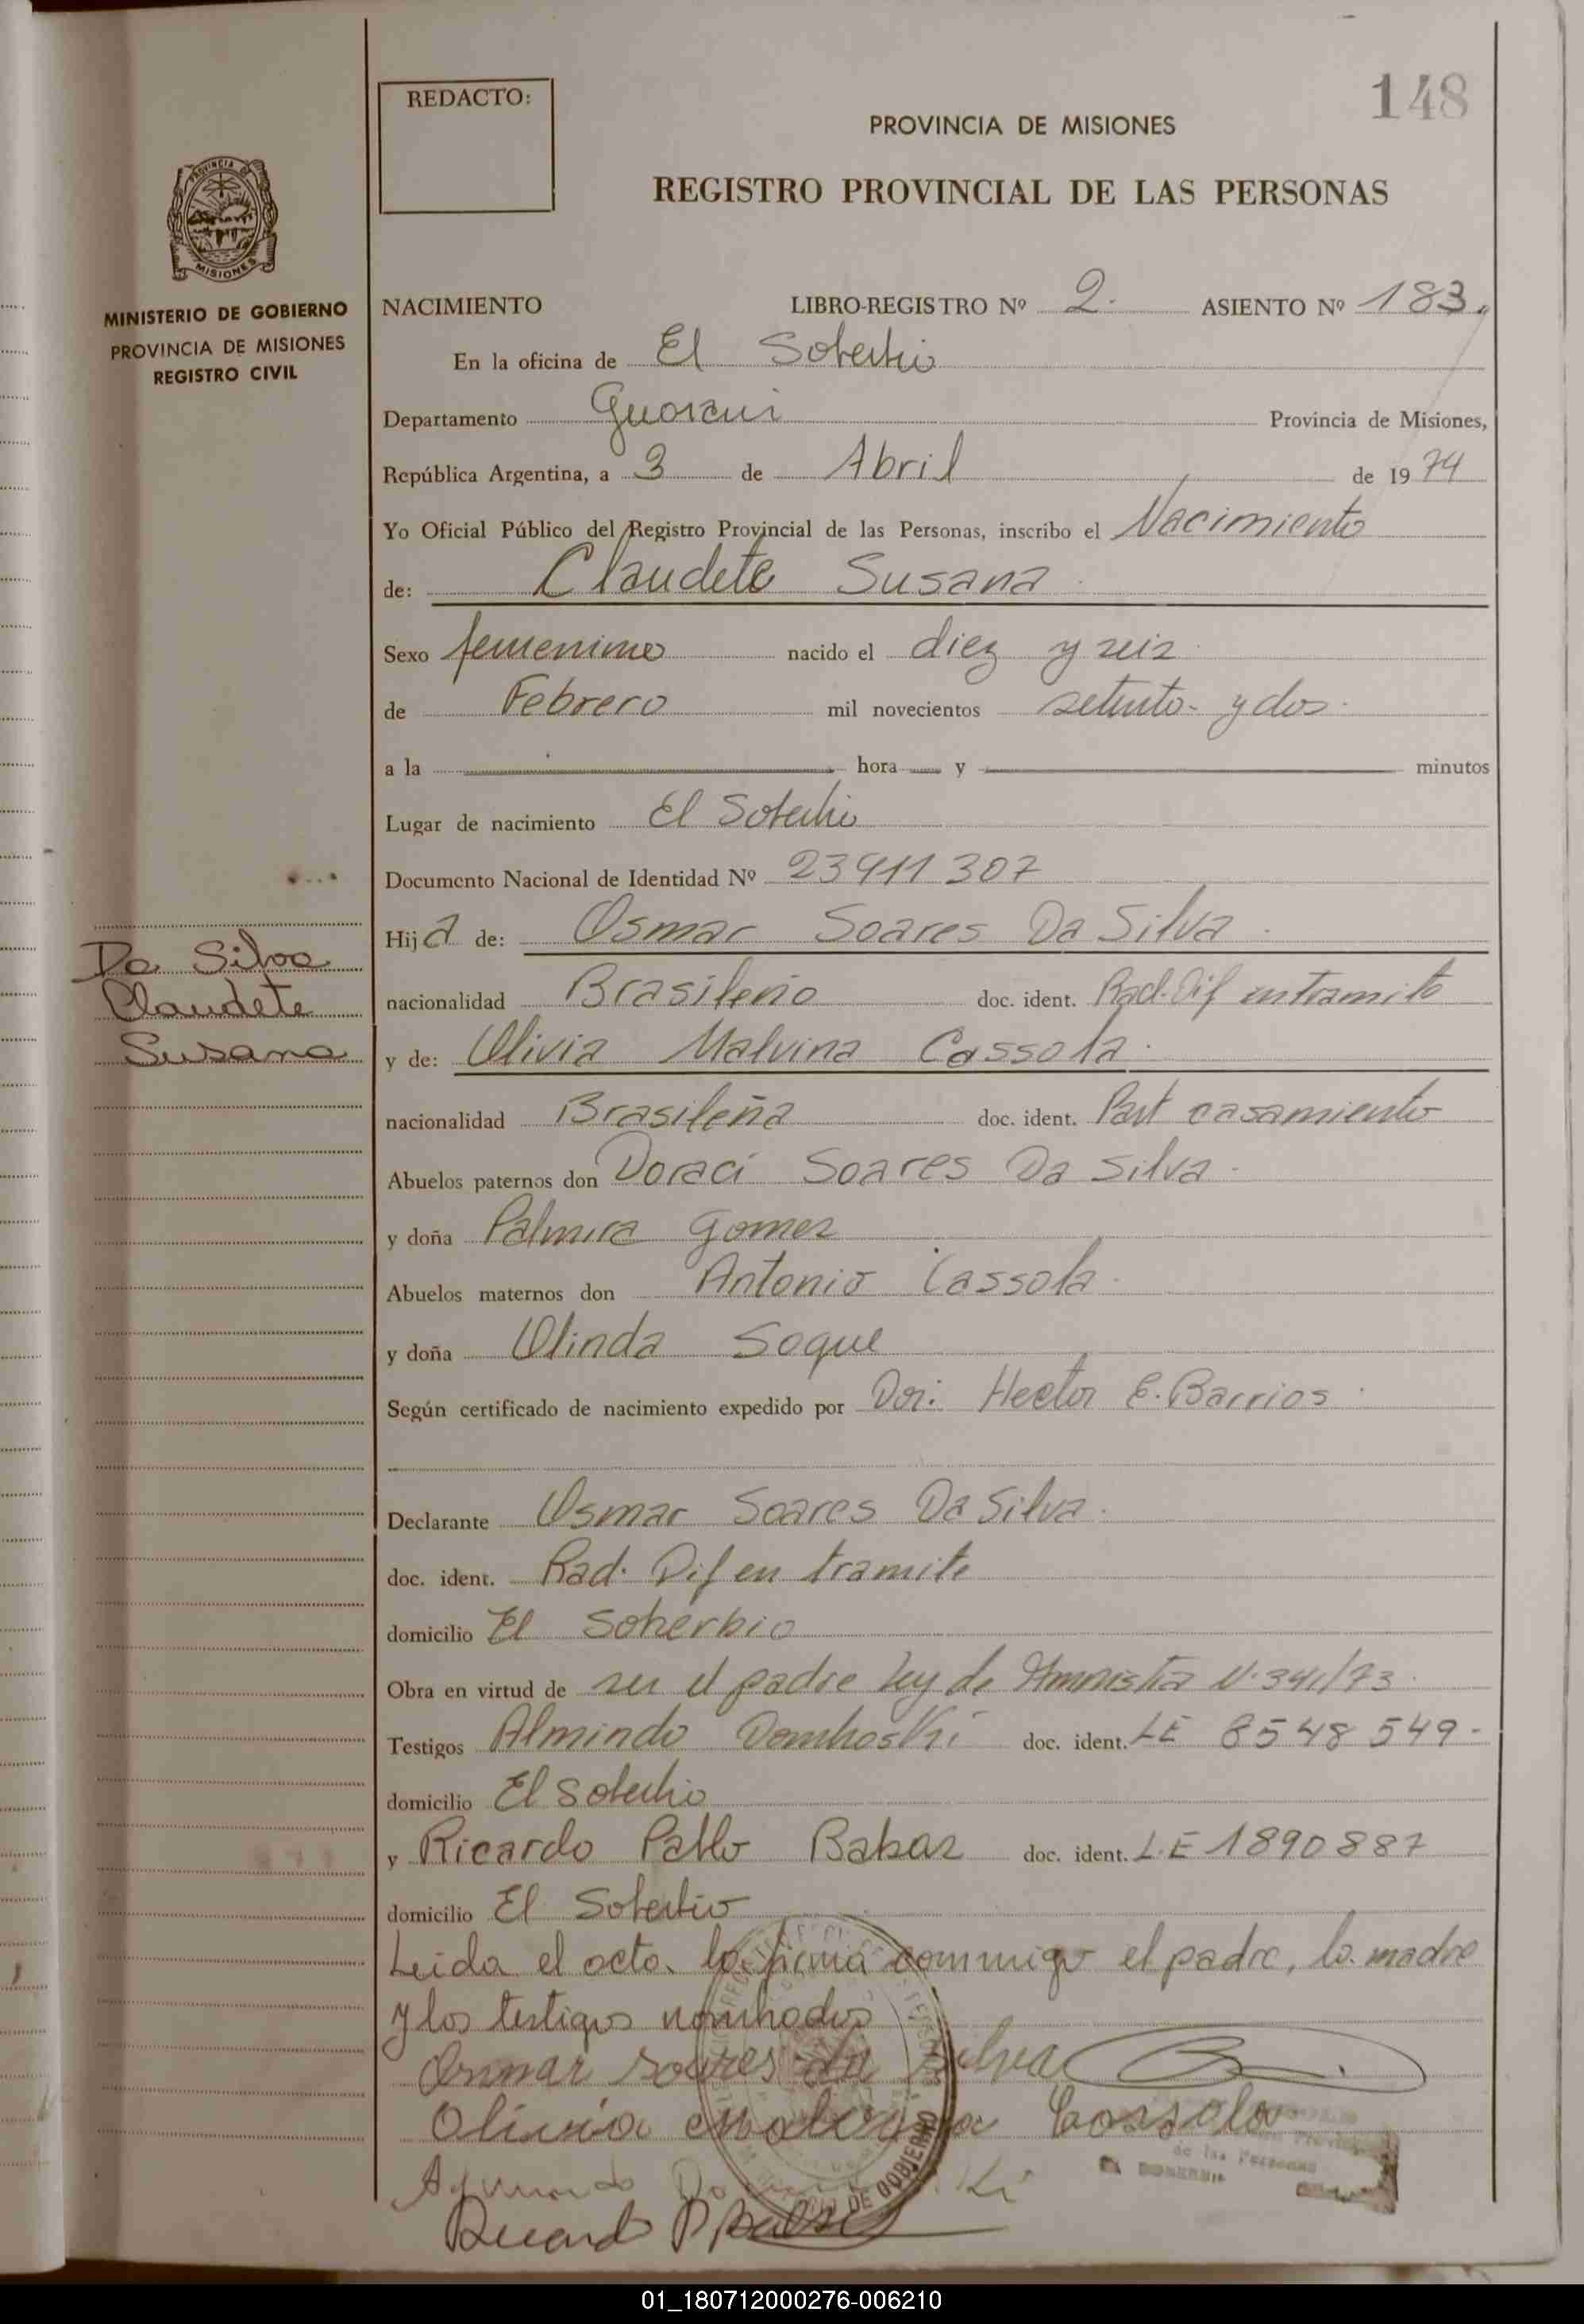 148
REDACTO:
PROVINCIA DE MISIONES
REGISTRO PROVINCIAL DE LAS PERSONAS
PROVINCIA DE
MISIONES
MINISTERIO DE GOBIERNO
PROVINCIA DE MISIONES
REGISTRO CIVIL
NACIMIENTO LIBRO-REGISTRO Nº 2. ASIENTO Nº 183.
En la oficina de El Soberbio
Departamento Guarani Provincia de Misiones,
República Argentina, a 3 de Abril de 1974
Yo Oficial Público del Registro Provincial de las Personas, inscribo el Nacimiento
de: Claudete Susana
Sexo femenino nacido el diez y seis
de Febrero mil novecientos setenta y dos
a la hora y minutos
Lugar de nacimiento El Soberbio
Documento Nacional de Identidad Nº 23911307
Hija de: Osmar Soares Da Silva
nacionalidad Brasileño doc. ident. Rad. Dif en tramite
y de: Olivia Malvina Cassola
nacionalidad Brasileña doc. ident. Part casamiento
Abuelos paternos don Doraci Soares Da Silva
y doña Palmira Gomez
Abuelos maternos don Antonio Cassola
y doña Olinda Soque
Según certificado de nacimiento expedido por Hector E. Barrios
Declarante Osmar Soares Da Silva
doc. ident. Rad. Dif en tramite
domicilio El Soberbio
Obra en virtud de ser el padre Ley de Amnistia N. 341/73
Testigos Almindo Domhoski doc. ident. LE 8548549-
domicilio El Soberbio
y Ricardo Pablo Babaz doc. ident. L.E 1890887
domicilio El Soberbio
Leida el acta. la firma commigo el padre, la madre
y los testigos nombrados
Da Silva
Claudete
Susana
Osmar soares da silva
Olivia malvina Cassola
DE GOBIERNO
de las Personas
Ricardo P
01_180712000276-006210